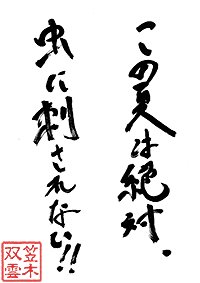 この夏は絶対、
虫に刺されない!!
笠木
双雲